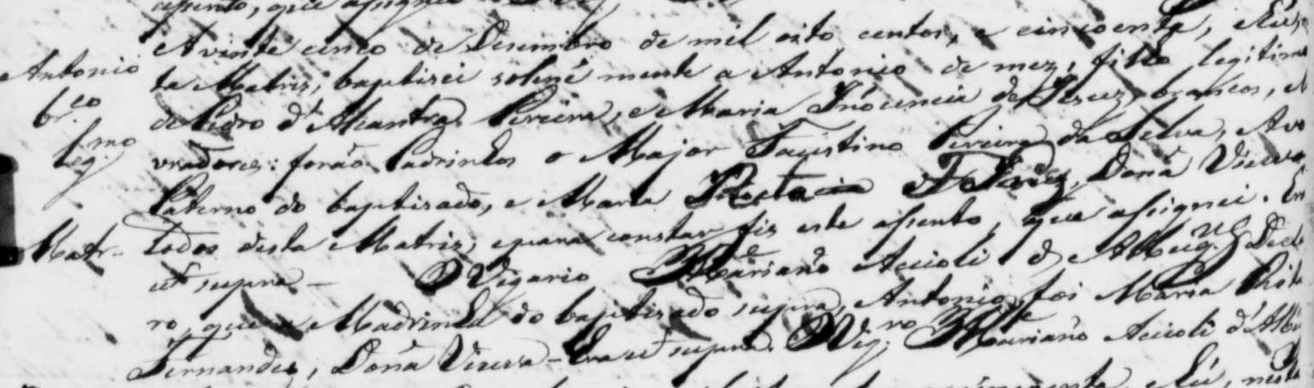 assento, que assignei
A vinte cinco de Desembro de mil oito centos, e cincoenta, Eu, nes
Antonio
ta Matriz, baptisei solene mente a Antonio de mez, filho legitimo
b.co
de Pedro d'Alcantra Pereira, e Maria Inocencia de Jesuz, brancos, e la
leg.mo
vradores: forão Padrinhos o Major Faustino Pereira da Silva, Avo
Paterno do baptisado, e Maria Dona Viuva
Matr.
todos desta Matriz; e para constar fiz este assento, que assignei. Era
ut supra - O Vigario Mariano Accioli d'Albuq.ue Decla
ro, que a Madrinha do baptisado supra, Antonio, foi Maria
Fernandes, Dona Viuva - Era ut supra. O Vig.ro Mariano Accioli d'Albu
Eu, nesta